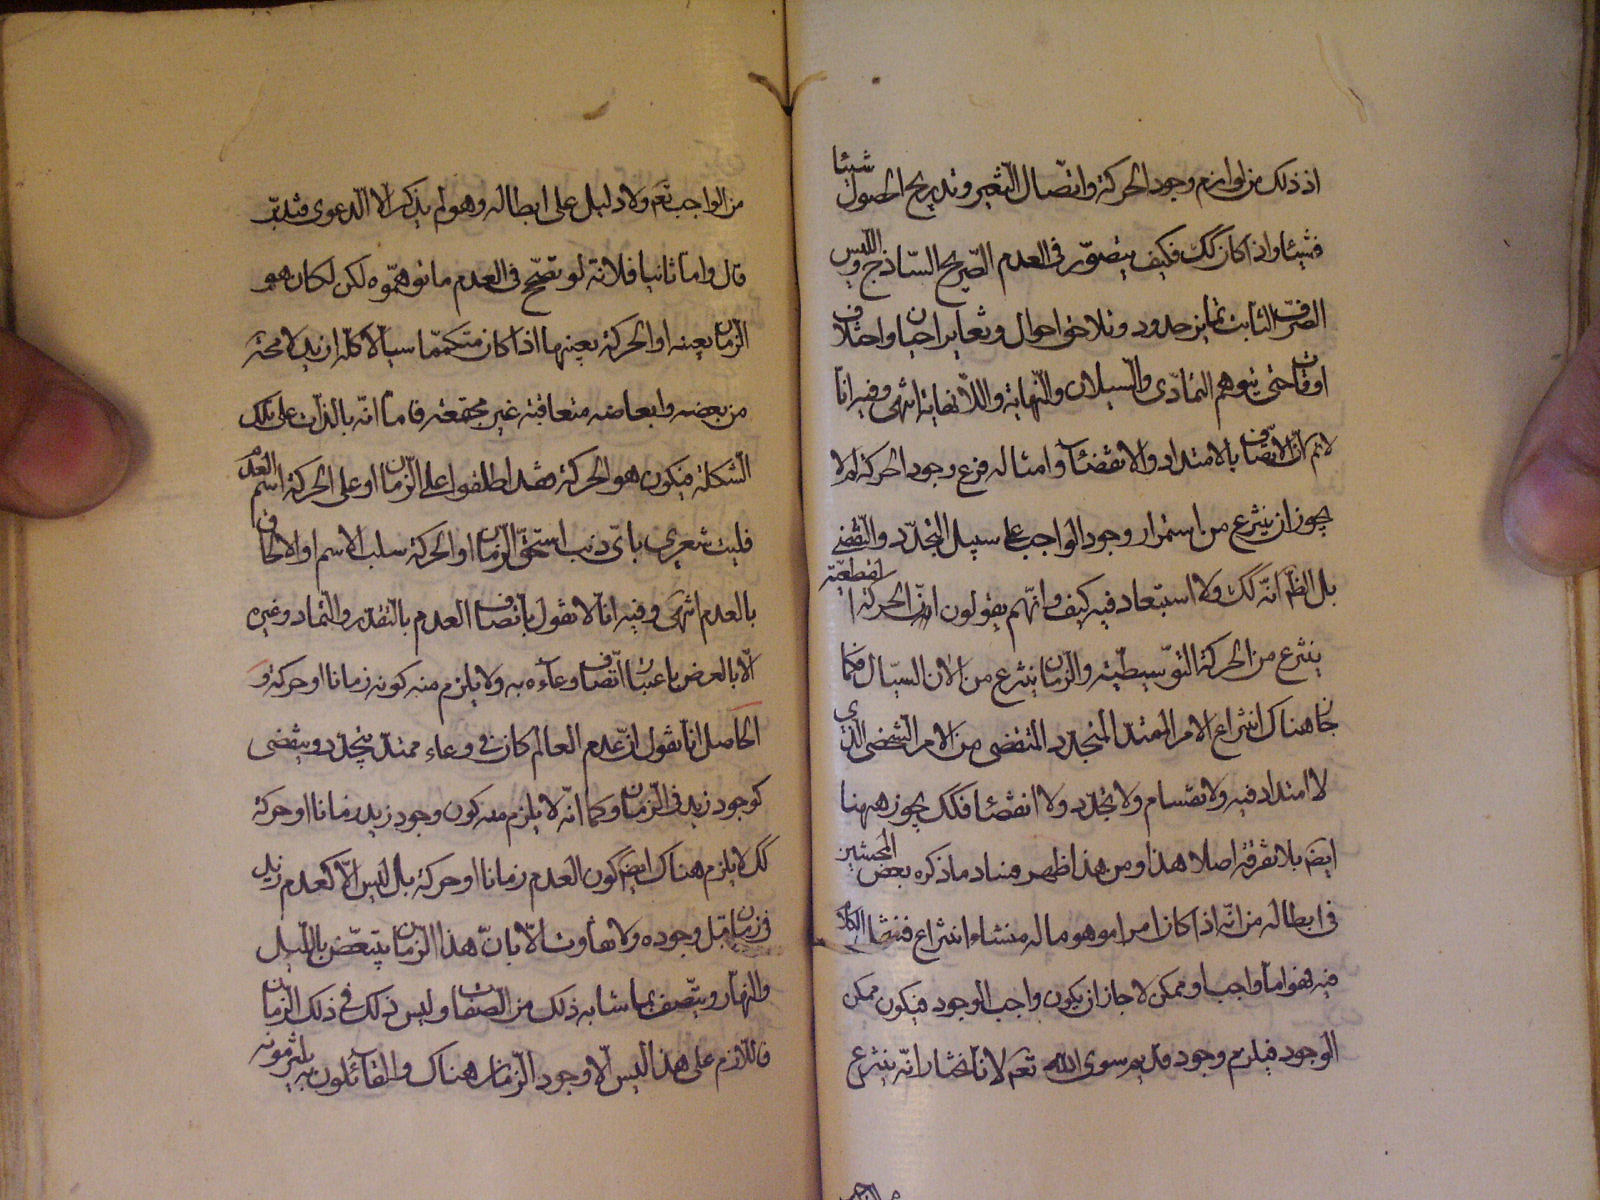 اذ ذلك من لوازم وجود الحركة واتصال التغير وتدريج الحصول شيئا
فشيئا واذا كان كك فكيف يتصوّر فى العدم الصّريح السّاذج والليس
الصّرف الثابت تمايز حدود وتلاحق احوال وتغاير احيان واختلاف
اوقات حتى يتوهم التمادّى والسيلان والنّهاية واللانهاية انتهى وفيه انا
لانم انّ الاتّصاف بالامتداد والانقضاء وامثاله فرع وجود الحركة لم لا
يجوز ان ينتزع من استمرار وجود الواجب على سبيل التجدّد والتقضّى
بل الظ انّه كك ولا استبعاد فيه كيف وانّهم يقولون انّ الحركة القطعيّة
ينتزع من الحركة التوسيطيّة والزمان ينتزع من الان السيّال فكما
جاز هناك انتزاع الامر الممتد المتجدّد المتقضى من الامر الشخصى الذى
لا امتداد فيه ولا تقسام ولا تجدّد ولا انقضاء فكك يجوز ههنا
ايض بلا تفرقة اصلا هذا ومن هذا ظهر فساد ما ذكره بعض المحشين
فى ابطاله من انّه اذا كان امرا موهوما له منشاء انتزاع فننقل الكلام
فيه فهو اما واجب او ممكن لا جاز ان يكون واجب الوجود فيكون ممكن
الوجود فيلزم وجود قديم سوى الله تعم لانا نختار انّه ينتزع
من الواجب تعم ولا دليل على ابطاله وهو لم يذكر الا الدعوى فتدبّر
قال واما ثانيا فلانّه لو تصحّح فى العدم ما توهّموه لكن لكان هو
الزمان بعينه او الحركة بعينها اذا كان متكمّما سيالا كله ازيد لا محة
من بعضه وابعاضه متعاقبة غير مجتمعة فاما انّه بالذات على تلك
الشكلة فيكون هو الحركة فقد اطلقوا على الزمان او على الحركة اسم العدم
فليت شعرى باىّ ذنب استحقّ الزمان او الحركة سلب الاسم او الالحاق
بالعدم انتهى وفيه انا لا نقول باتصاف العدم بالتقدّر والتماد وغيره
الّا بالعرض باعتبار اتّصاف وعاءه به ولا يلزم منه كونه زمانا او حركة و
الحاصل انا نقول انّ عدم العالم كان فى وعاء ممتدّ يتجدّد ويتقضى
كوجود زيد فى الزمان وكما انّه لا يلزم منه كون وجود زيد زمانا او حركة
كك لا يلزم هناك ايض كون العدم زمانا او حركة بل ليس الّا كعدم زيد
فى زمان قبل وجوده ولا تفاوت الّا بانّ هذا الزمان يتبعّض بالليل
والنهار ويتّصف بما شابه ذلك من الصّفات وليس ذلك فى ذلك الزمان
فاللازم على هذا ليس الّا وجود الزمان هناك والقائلون به يلتزمونه